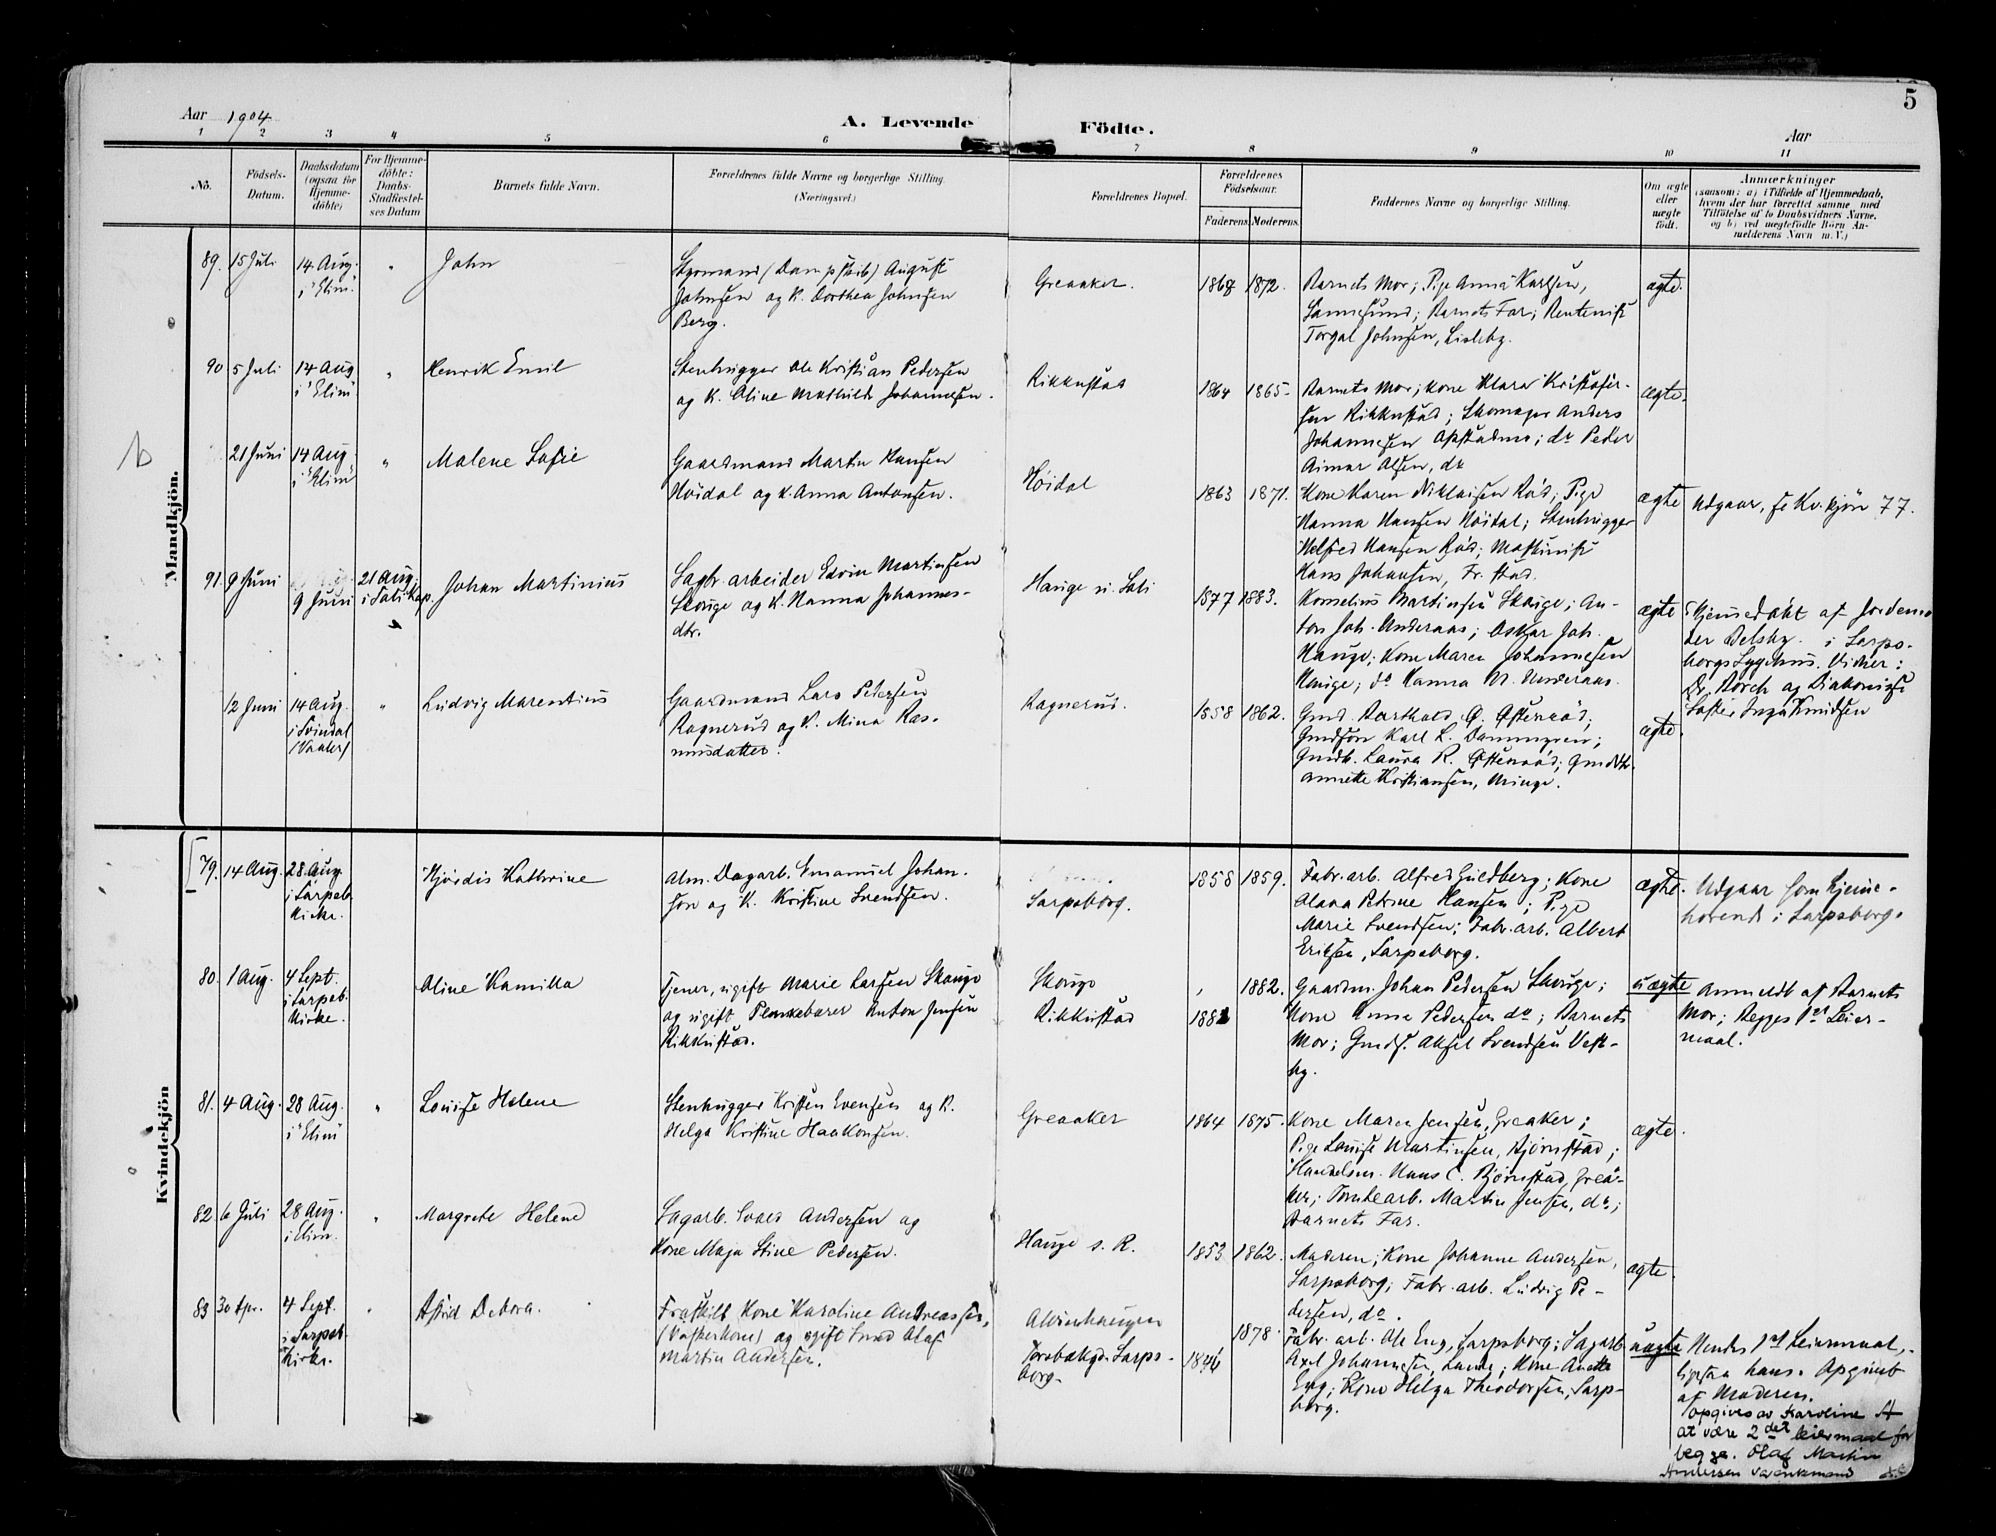 5
Aar 1904
A. Levende Födte.
Aar
1 2 3 4 5 6 7 8 9 10 11
No.
Födsels-
Datum.
Daabsdatum
(ogsaa for
Hjemme-
döbte)
For Hjemme-
döbte:
Daabs-
Stadfæstel-
ses Datum
Barnets fulde Navn.
Forældrenes fulde Navne og borgerlige Stilling.
(Næringsvei.)
Forældrenes Bopæl.
Forældrenes
Födselsaar.
Faderens. Moderens.
Faddernes Navne og borgerlige Stilling.
Om ægte
eller
uægte
födt.
Anmærkninger
(saasom: a) i Tilfælde af Hjemmedaab,
hvem der har forrettet samme med
Tilföielse af to Daabsvidners Navne,
og b) ved uægtefödte Börn An-
melderens Navn m. V.)
Mandkjön.
89. 15 Juli
14 Aug.
i "Elim"
"
John
Styrmand (Dampskib) August
Johnsen og K. Dorthea Johnsen
Berg.
Greaaker.
1868 1872.
Barnets Mor; Pige Anna Karlsen,
Sannesund; Barnets Far; Rentenist
Torgal Johnsen, Lisleby.
ægte.
90 5 Juli
14 Aug
i "Elim"
"
Henrik Emil
Stenhugger Ole Kristian Pedersen
og K. Oline Mathilde Johannesen.
Rikkustad
1864 1865
Barnets Mor; Kone Klara Kristofer-
sen Rikkustad; Skomager Anders
Johannesen Opstadmo; do Peder
Aimar Olsen, do
ægte.
21 Juni
14 Aug
i "Elim"
"
Malene Sofie
Gaardmand Martin Hansen
Höidal og K. Anna Antonsen.
Höidal
1863 1871.
Kone Karen Niklaisen Röd; Pige
Hanna Hansen Höidal; Stenhugger
Helfred Hansen Röd; Maskinist
Hans Johansen, Fr.stad.
ægte
Udgaar, se Kv.kjön 77.
91. 9 Juni
9 Juni
21 Aug.
i Soli Kap.
Johan Martinius
Sagbr.arbeider Edvin Martinsen
Skouge og K. Hanna Johannes-
dtr.
Hauge u. Soli
1877 1883.
Kornelius Martinsen Skouge; An-
ton Joh. Underaas; Oskar Joh.
Hauge; Kone Maren Johannesen
Hauge; do Hanna M. Underaas.
ægte
Hjemmedöbt af Jordemo-
der Delsby i Sarps-
borgs Sygehus. Vidner:
Dr. Borch og Diakonisse
Söster Inga Knudsen
12 Juni
14 Aug.
i Svindal
(Vaaler)
"
Ludvig Marentius
Gaardmand Lars Petersen
Ragnerud og K. Mina Ras-
musdatter.
Ragnerud.
1858 1862.
Gmd. Barthold O. Österöd;
Gmdsön Karl L. Dammyren;
Gmdk. Laura R. Österöd; Gmddtr.
Annette Kristiansen, Minge.
ægte.
Kvindekjön
79. 14 Aug.
28 Aug.
i Sarpsb.
Kirke.
Hjördis Kathrine
Alm. Dagarb. Emanuel Johan-
son og K. Kristine Svendsen.
Sarpsborg.
1858 1859.
Fabr.arb. Alfred Guldberg; Kone
Olava Petrine Hansen; Pige
Marie Svendsen; Fabr.arb. Albert
Eriksen, Sarpsborg.
ægte.
Udgaar som hjemme-
hörende i Sarpsborg.
80. 1 Aug.
4 Sept.
i Sarpsb.
Kirke.
Oline Kamilla
Tjener, ugift Marie Larsen Skouge
og ugift Plankebærer Anton Jensen
Rikkustad.
Skouge
Rikkustad
1882.
1881
Gaardm. Johan Pedersen Skouge;
Kone Anna Pedersen do; Barnets
Mor; Gmds. Aksel Svendsen Vest-
by.
uægte
Anmeldt af Barnets
Mor; Begges 1st Leier-
maal.
81. 4 Aug.
28 Aug.
i "Elim"
"
Louise Helene
Stenhugger Kristen Evensen og K.
Helga Kristine Haakonsen.
Greaaker
1864 1875.
Kone Maren Jensen, Greaker;
Pige Louise Martinsen, Bjørnstad;
Handelsm. Hans C. Bjørnstad, Greå-
ker; Tomtearb. Martin Jensen, do;
Barnets Far.
ægte.
82. 6 Juli
28 Aug.
i Elim.
"
Margrete Helene
Sagarb. Evald Andersen og
Kone Maja Stine Pedersen.
Hauge s. R.
1853 1862.
Moderen; Kone Johanne Andersen,
Sarpsborg; Fabr.arb. Ludvig Pe-
dersen, do.
ægte.
83 30 Apr.
4 Sept.
i Sarpsb.
Kirke.
"
Astrid Debora.
Fraskilt Kone Karoline Andreassen,
(Vaskerkone) og ugift Smed Olaf
Martin Andersen.
Alvimhaugen
Torsbækgd. Sarps-
borg.
1878.
1846
Fabr. arb. Ole Eng, Sarpsborg; Sagarb.
Axel Johannesen, Lande; Kone Anette
Eng; Kone Helga Theodorsen, Sarps-
borg.
uægte
Hendes 1st Leiermaal,
ligesaa hans. Opgivet
af Moderen.
Opgives av Karoline A
at være 2det leiermaal for
begge. Olaf Martin
Andersen